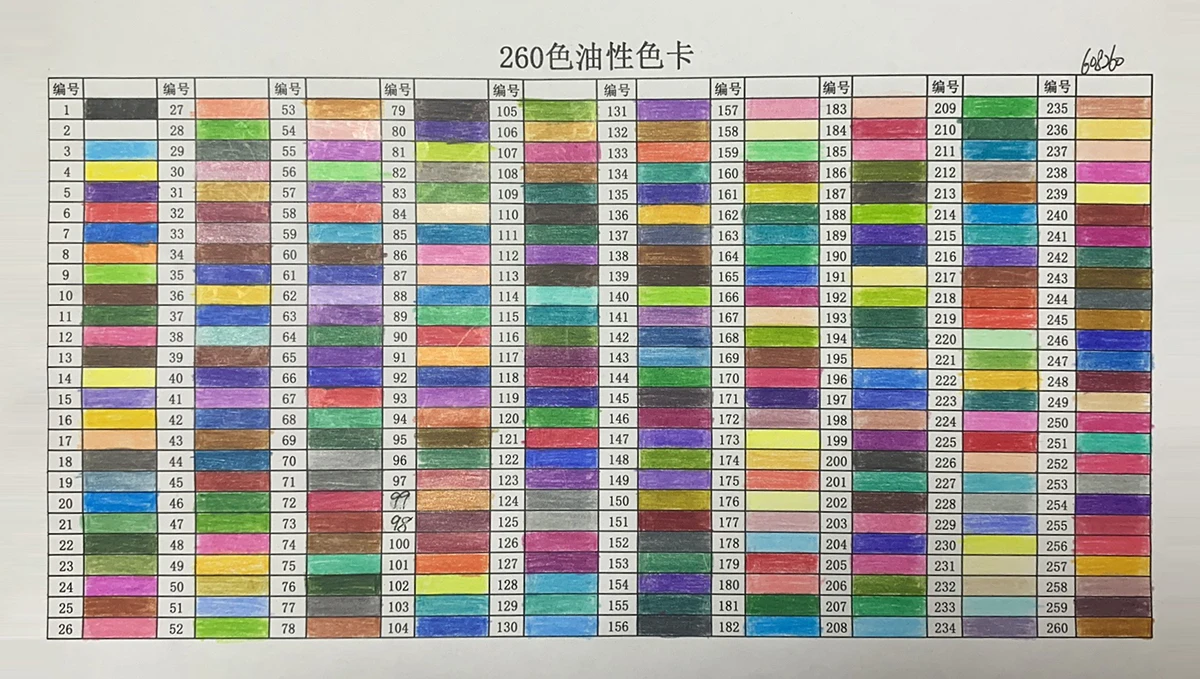 260色油性色卡
608260
编号 编号 编号 编号 编号 编号 编号 编号 编号 编号
1 27 53 79 105 131 157 183 209 235
2 28 54 80 106 132 158 184 210 236
3 29 55 81 107 133 159 185 211 237
4 30 56 82 108 134 160 186 212 238
5 31 57 83 109 135 161 187 213 239
6 32 58 84 110 136 162 188 214 240
7 33 59 85 111 137 163 189 215 241
8 34 60 86 112 138 164 190 216 242
9 35 61 87 113 139 165 191 217 243
10 36 62 88 114 140 166 192 218 244
11 37 63 89 115 141 167 193 219 245
12 38 64 90 116 142 168 194 220 246
13 39 65 91 117 143 169 195 221 247
14 40 66 92 118 144 170 196 222 248
15 41 67 93 119 145 171 197 223 249
16 42 68 94 120 146 172 198 224 250
17 43 69 95 121 147 173 199 225 251
18 44 70 96 122 148 174 200 226 252
19 45 71 97 123 149 175 201 227 253
20 46 72 99 124 150 176 202 228 254
21 47 73 98 125 151 177 203 229 255
22 48 74 100 126 152 178 204 230 256
23 49 75 101 127 153 179 205 231 257
24 50 76 102 128 154 180 206 232 258
25 51 77 103 129 155 181 207 233 259
26 52 78 104 130 156 182 208 234 260